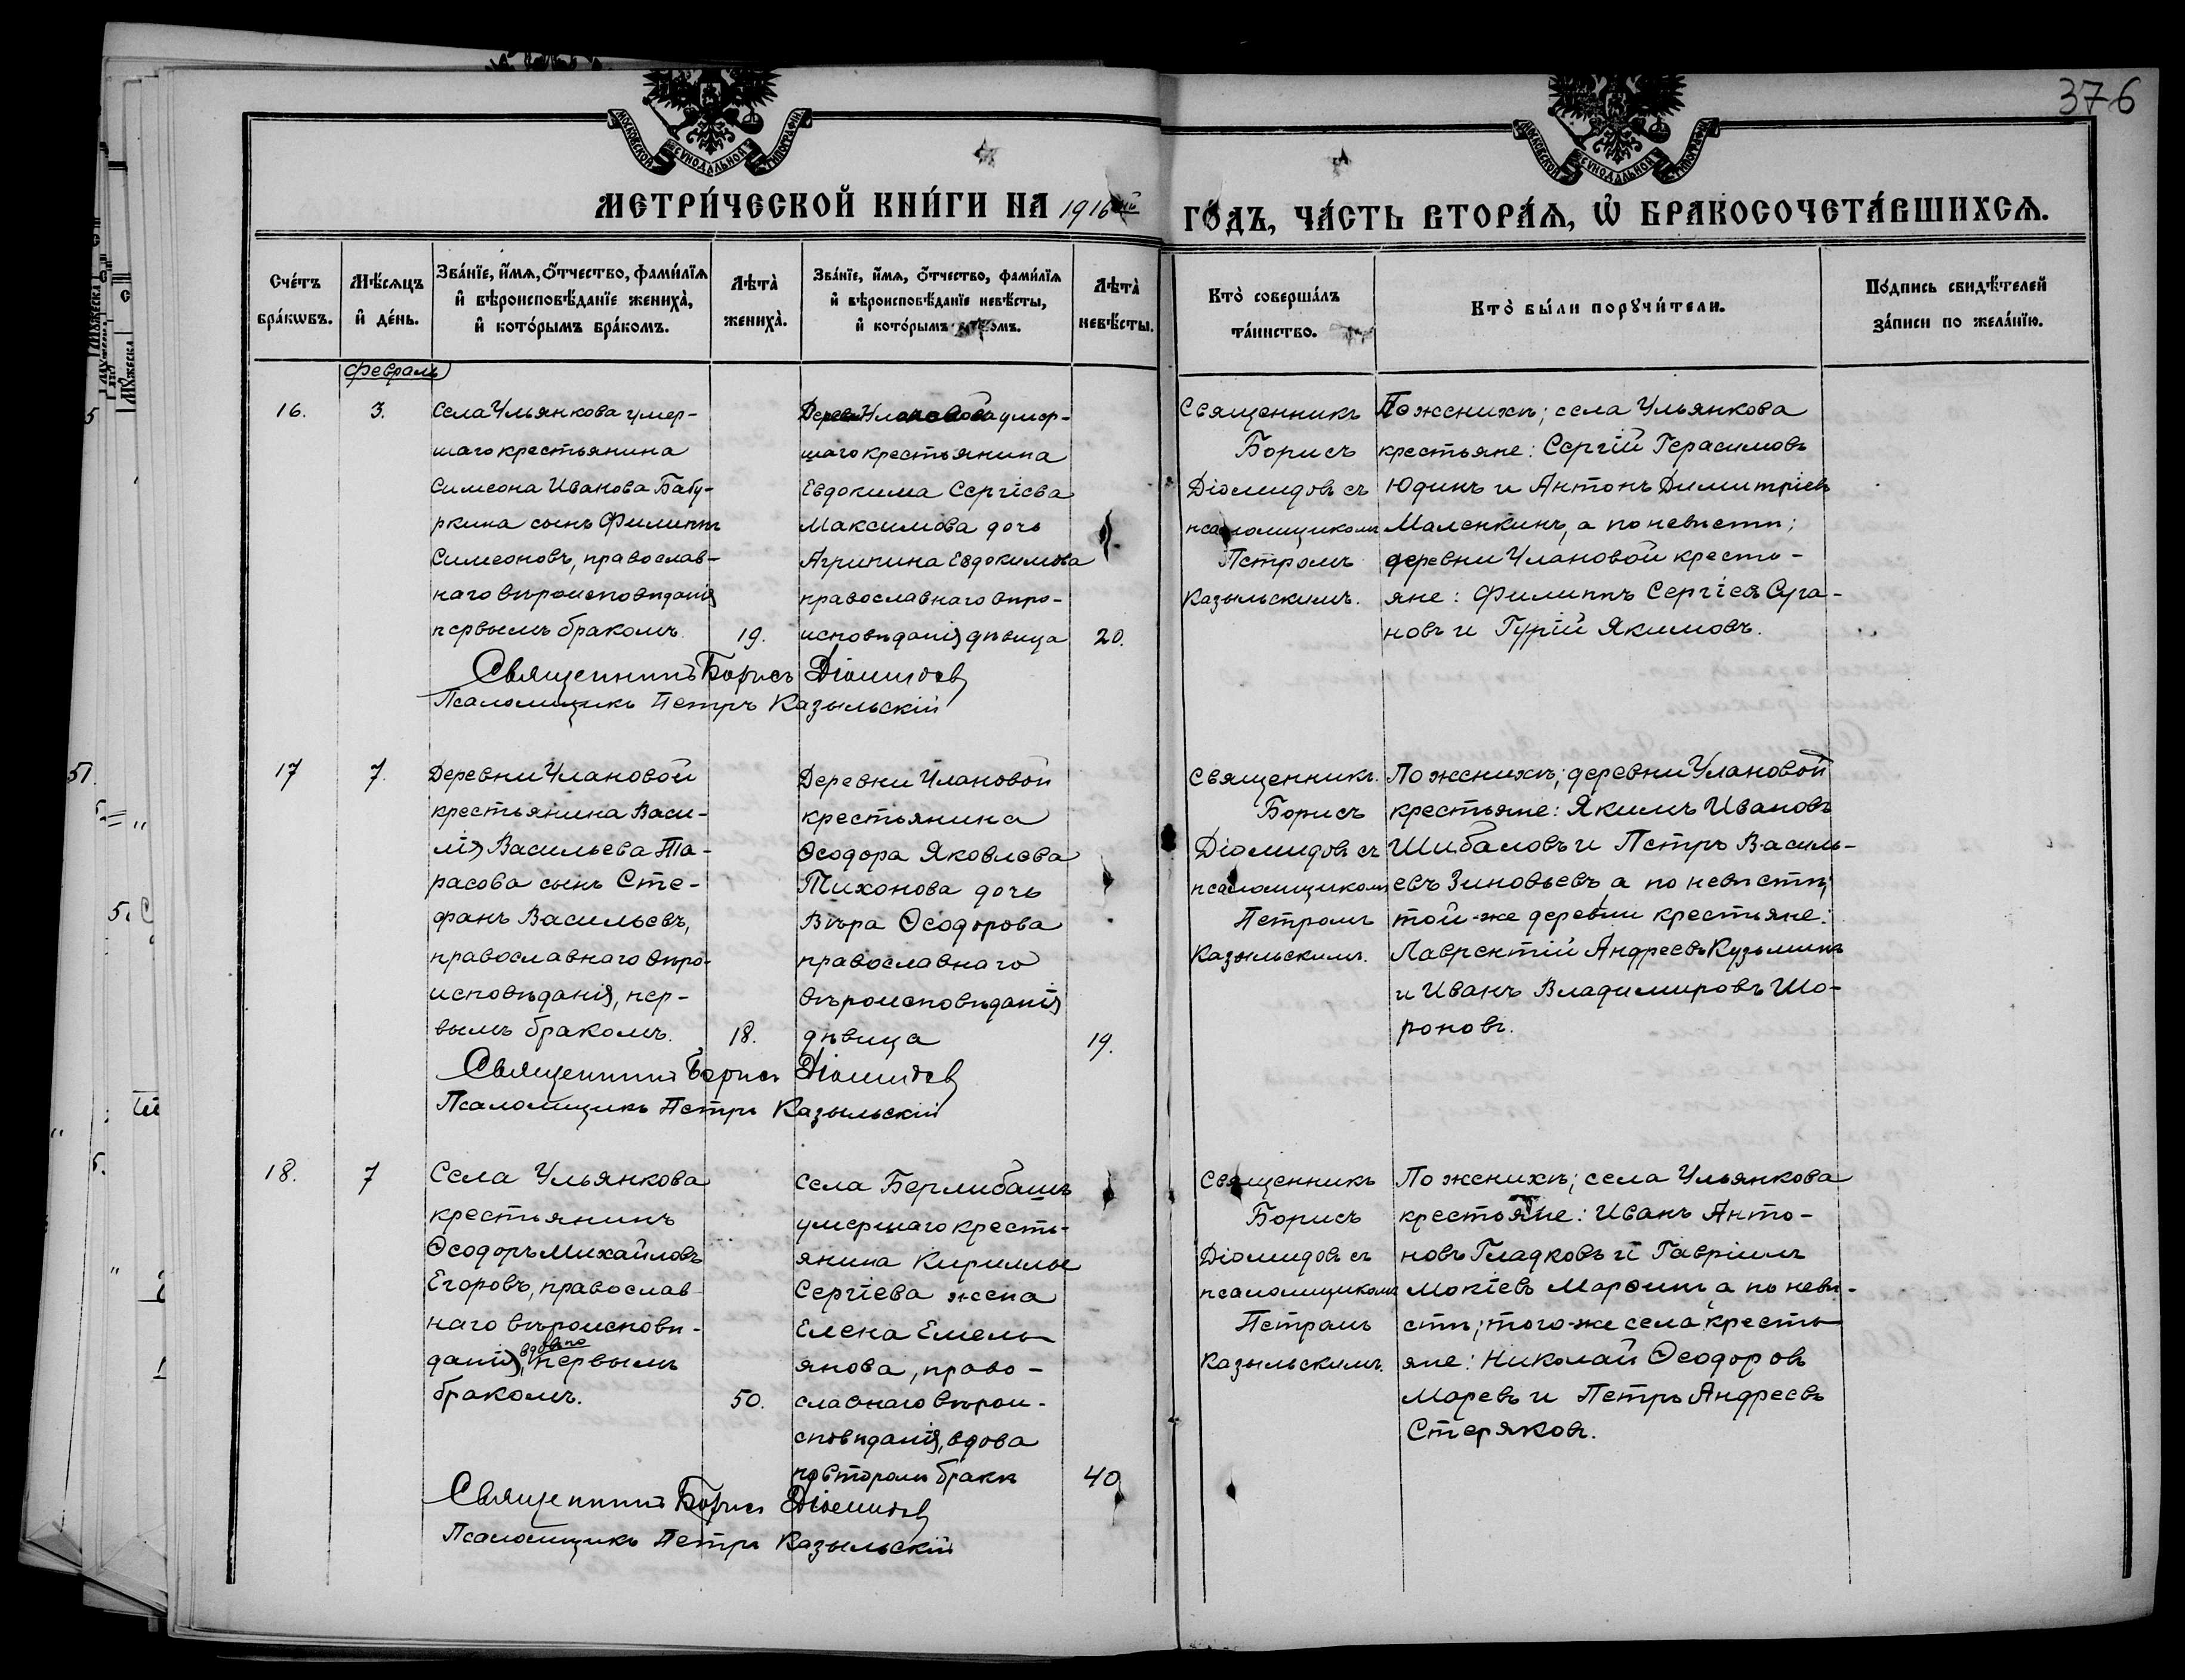 376
МОСКОВСКОЙ СѴНОДАЛЬНОЙ ТИПОГРАФІИ
МОСКОВСКОЙ СѴНОДАЛЬНОЙ ТИПОГРАФІИ
МЕТРИ́ЧЕСКОЙ КНИ́ГИ НА 1916ый ГО́ДЪ, ЧА́СТЬ ВТОРА́Ѧ, Ѿ БРАКОСОЧЕТА́ВШИХСѦ.
Сче́тъ
бра́кѡвъ.
Мѣ́сѧцъ
и҆ де́нь.
Зва́нїе, и҆́мѧ, ѻ҆́тчество, фами́лїѧ
и҆ вѣроисповѣ́данїе жениха̀,
и҆ кото́рымъ бра́комъ.
Лѣта̀
жениха̀.
Зва́нїе, и҆́мѧ, ѻ҆́тчество, фами́лїѧ
и҆ вѣроисповѣ́данїе невѣ́сты,
и҆ кото́рымъ бра́комъ.
Лѣта̀
невѣ́сты.
Кто̀ соверша́лъ
та́инство.
Кто̀ бы́ли порꙋчи́тели.
По́дпись свидѣ́телей
за́писи по жела́нїю.
Февраль
16.
3.
Села Ульянкова умер-
шаго крестьянина
Симеона Иванова Бабу-
ркина сынъ Филиппъ
Симеоновъ, православ-
наго вѣроисповѣданія
первымъ бракомъ.
19.
Дерев Улановой умер-
шаго крестьянина
Евдокима Сергіева
Максимова дочь
Агрипина Евдокимова
православнаго вѣро-
исповѣданія дѣвица
20.
Священникъ
Борисъ
Діомидовъ съ
псаломщикомъ
Петромъ
Казыльскимъ.
По женихѣ; села Ульянкова
крестьяне: Сергій Герасимовъ
Юдинъ и Антонъ Димитріевъ
Маленкинъ, а по невѣстѣ;
деревни Улановой кресть-
яне: Филиппъ Сергіевъ Суга-
новъ и Гурій Якимовъ.
Священникъ Борисъ Діомидовъ
Псаломщикъ Петръ Казыльскій
17
7.
Деревни Улановой
крестьянина Васи-
лія Васильева Та-
расова сынъ Сте-
фанъ Васильевъ,
православнаго вѣро-
исповѣданія, пер-
вымъ бракомъ.
18.
Деревни Улановой
крестьянина
Ѳеодора Яковлева
Тихонова дочь
Вѣра Ѳеодорова
православнаго
вѣроисповѣданія
дѣвица
19.
Священникъ.
Борисъ
Діомидовъ съ
псаломщикомъ
Петромъ
Казыльскимъ.
По женихѣ; деревни Улановой
крестьяне: Якимъ Ивановъ
Шибаловъ и Петръ Василь-
евъ Зиновьевъ, а по невѣстѣ;
той-же деревни крестьяне:
Лаврентій Андреевъ Кузьминъ
и Иванъ Владимировъ Шо-
роновъ.
Священникъ Борисъ Діомидовъ
Псаломщикъ Петръ Казыльскій
18.
7
Села Ульянкова
крестьянинъ
Ѳеодоръ Михайловъ
Егоровъ, православ-
наго вѣроисповѣ-
данія, первымъ
бракомъ.
50.
Села Берлибашъ
умершаго кресть-
янина Кириллы
Сергіева жена
Елена Емель-
янова, право-
славнаго вѣрои-
сповѣданія, вдова
по второмъ бракѣ
40
Священникъ
Борисъ
Діомидовъ съ
псаломщикомъ
Петромъ
Казыльскимъ.
По женихѣ; села Ульянкова
крестьяне: Иванъ Анто-
новъ Гладковъ и Гавріилъ
Мокіевъ Марѳинъ, а по невѣ-
стѣ; того-же села кресть-
яне: Николай Ѳеодоровъ
Моревъ и Петръ Андреевъ
Стеряковъ.
Священникъ Борисъ Діомидовъ
Псаломщикъ Петръ Казыльскій